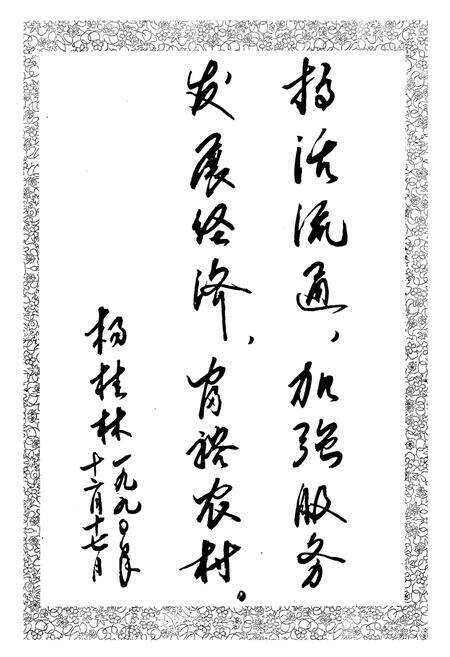 搞活流通，加强服务
发展经济，富裕农村。
杨桂林
一九九〇年
十二月十七日